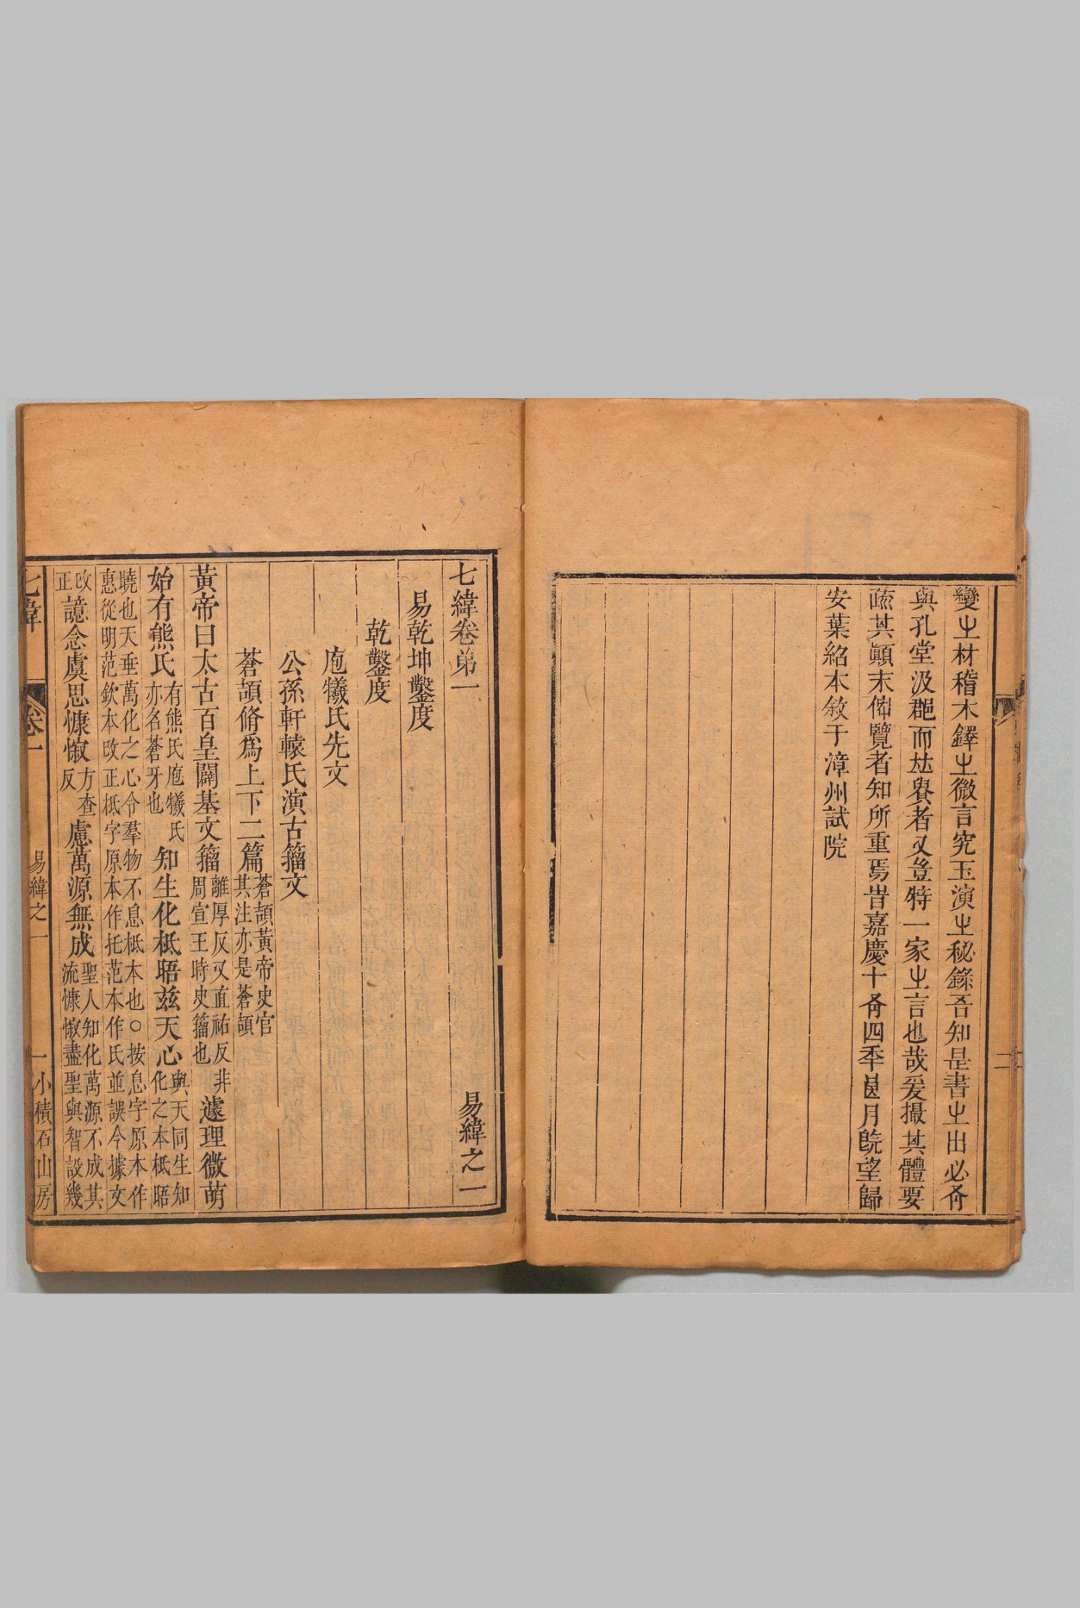 變㞢材稽木鐸㞢微言究玉演㞢秘錄吾知是書㞢出必㕛
與孔堂汲郡而𠀤興者又豈特一家㞢言也哉爰撮其體要
疏其顚末俾覽者知所重焉昔嘉慶十㕛四季月旣望歸
安葉紹本敘于漳州試院
二
七緯卷第一 易緯之一
易乾坤鑿度
乾鑿度
庖犧氏先文
公孫軒轅氏演古籀文
蒼頡脩爲上下二篇蒼頡黃帝史官其注亦是蒼頡
黃帝曰太古百皇闢基文籀離厚反又直祐反周宣王時史籀也非遽理微萌
始有熊氏有熊氏庖犧氏亦名蒼牙也知生化柢晤茲天心與天同生知化之本柢晤
曉也天垂萬化之心令羣物不息柢本也○按息字原本作惠從明范欽本改正柢字原本作托范本作氏並誤今據文
改正譩念虞思慷惙方查反慮萬源無成聖人知化萬源不成其流慷惙盡聖與智設幾
七緯 卷一 易緯之一 一 小積石山房